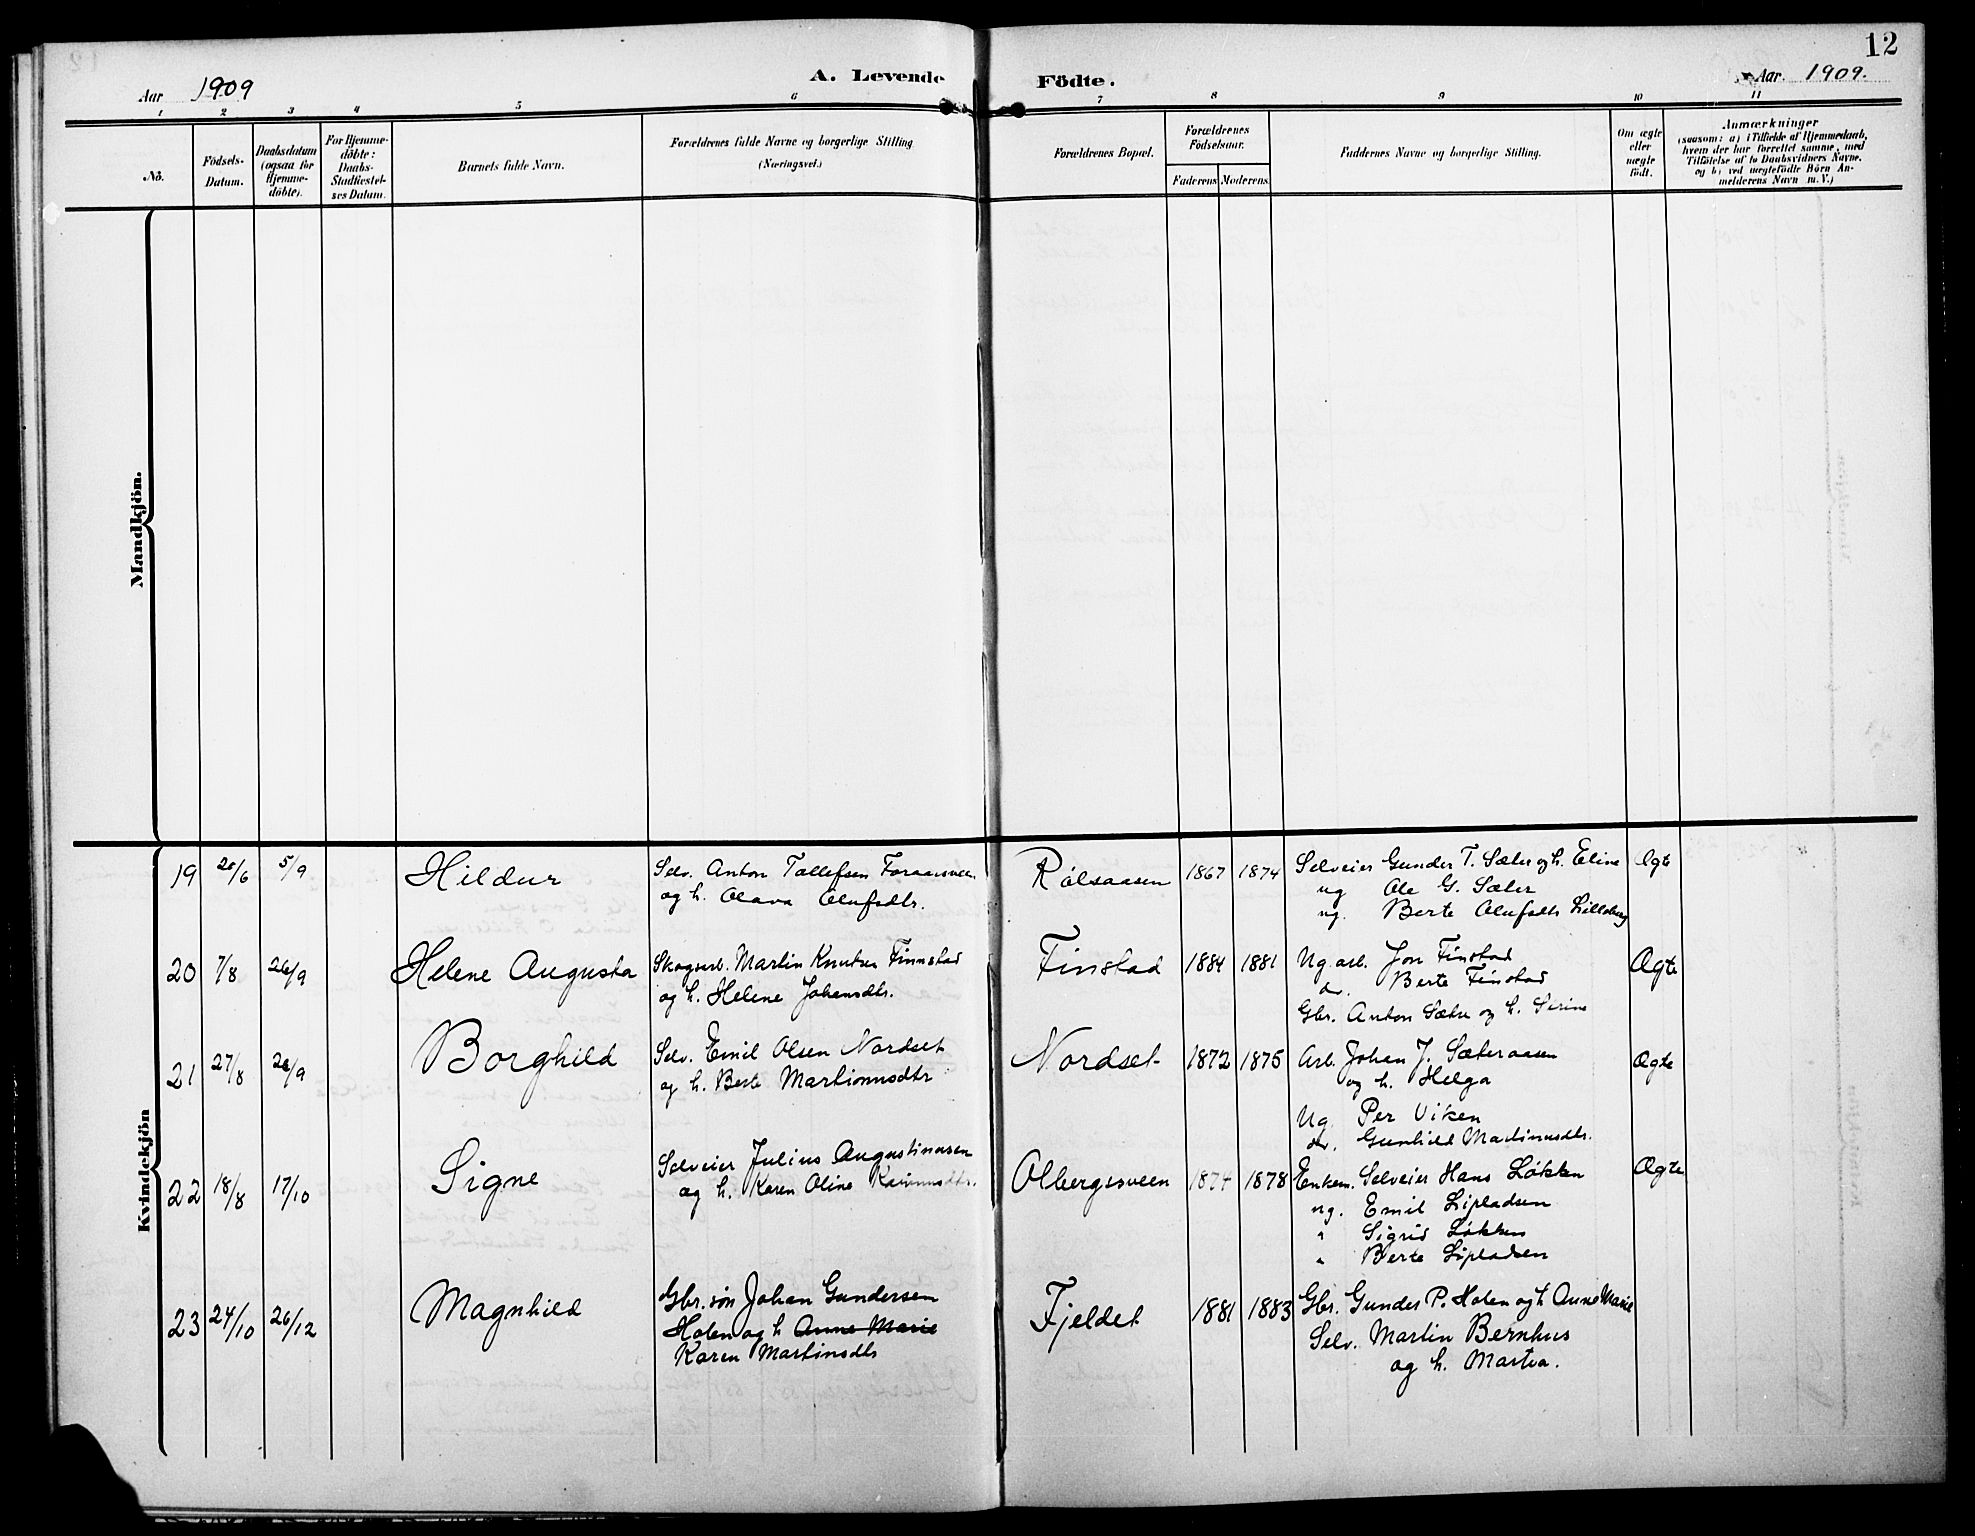 12
Aar 1909
A. Levende Födte.
Aar 1909.
1 2 3 4 5 6 7 8 9 10 11
No.
Födsels-
Datum.
Daabsdatum
(ogsaa for
Hjemme-
döbte).
For Hjemme-
döbte:
Daabs-
Stadfæstel-
ses Datum.
Barnets fulde Navn.
Forældrenes fulde Navne og borgerlige Stilling
(Næringsvei.)
Forældrenes Bopæl.
Forældrenes
Födselsaar.
Faderens Moderens
Faddernes Navne og borgerlige Stilling.
Om ægte
eller
uægte
födt.
Anmærkninger
(saasom: a) i Tilfælde af Hjemmedaab,
hvem der har forrettet samme, med
Tilföielse af to Daabsvidners Navne,
og b) ved uægtefödte Börn An-
melderens Navn m. V.)
Mandkjön.
Kvindekjön
19 20/6 5/9 Hildur
Selv. Anton Tollefsen
og h. Olava Olufsdtr.
Rölsaasen 1867 1874
Selveier Gunder T. Sæter og h. Eline
ug Ole G. Sæter
ug. Berte Olufsdtr Lilleberg
Ægte
20 7/8 26/9 Helene Augusta
Skogsarb. Martin Knutsen Finnstad
og h. Helene Johansdtr.
Finstad 1884 1881
Ug. arb. Jon Finstad
do. Berte Finstad
Gbr. Anton Sæter og h. Serine
Ægte
21 27/8 26/9 Borghild
Selv. Emil Olsen Nordset
og h. Berte Martinusdtr
Nordset 1872 1875
Arb. Johan J. Sæteraasen
og h. Helga
Ug. Per Viken
do. Gunhild Martinusdtr.
Ægte
22 18/8 17/10 Signe
Selveier Julius Augustinusen
og h. Karen Oline
Olbergsveen 1874 1878
Enkem. Selveier Hans Løkken
ug. Emil Lipladsen
" Sigrid Løkken
" Berte Lipladsen
Ægte
23 24/10 26/12 Magnhild
Gbr. søn Johan Gundersen
Holen og h Anne Marie
Karen Martinsdtr
Fjeldet 1881 1883
Gbr. Gunder P. Holen og h Anne Marie
Selv. Martin Bernhus
og h. Martea.